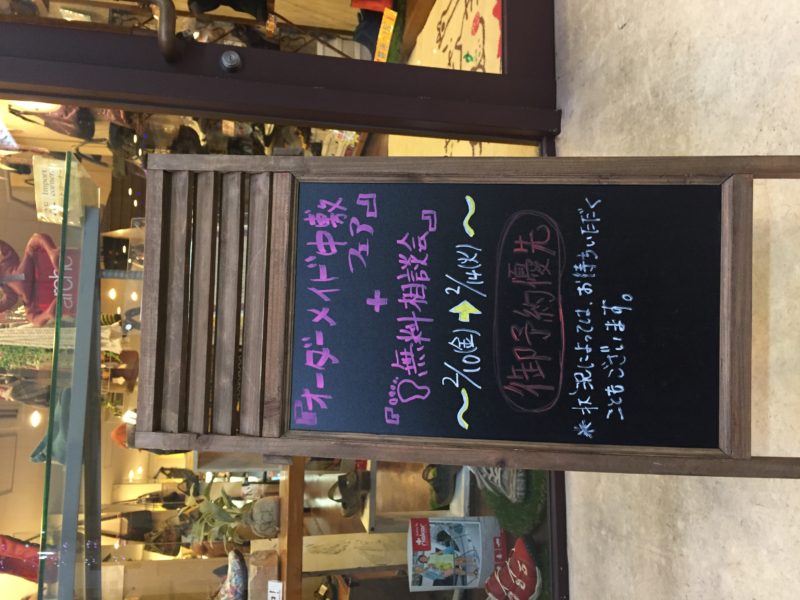 『オーダーメイド中敷
フェア』
+
『無料相談会』
〜2/10(金)➡2/14(火)〜
御予約優先
※状況によっては、お待ちいただく
こともございます。
Import
corner
arche